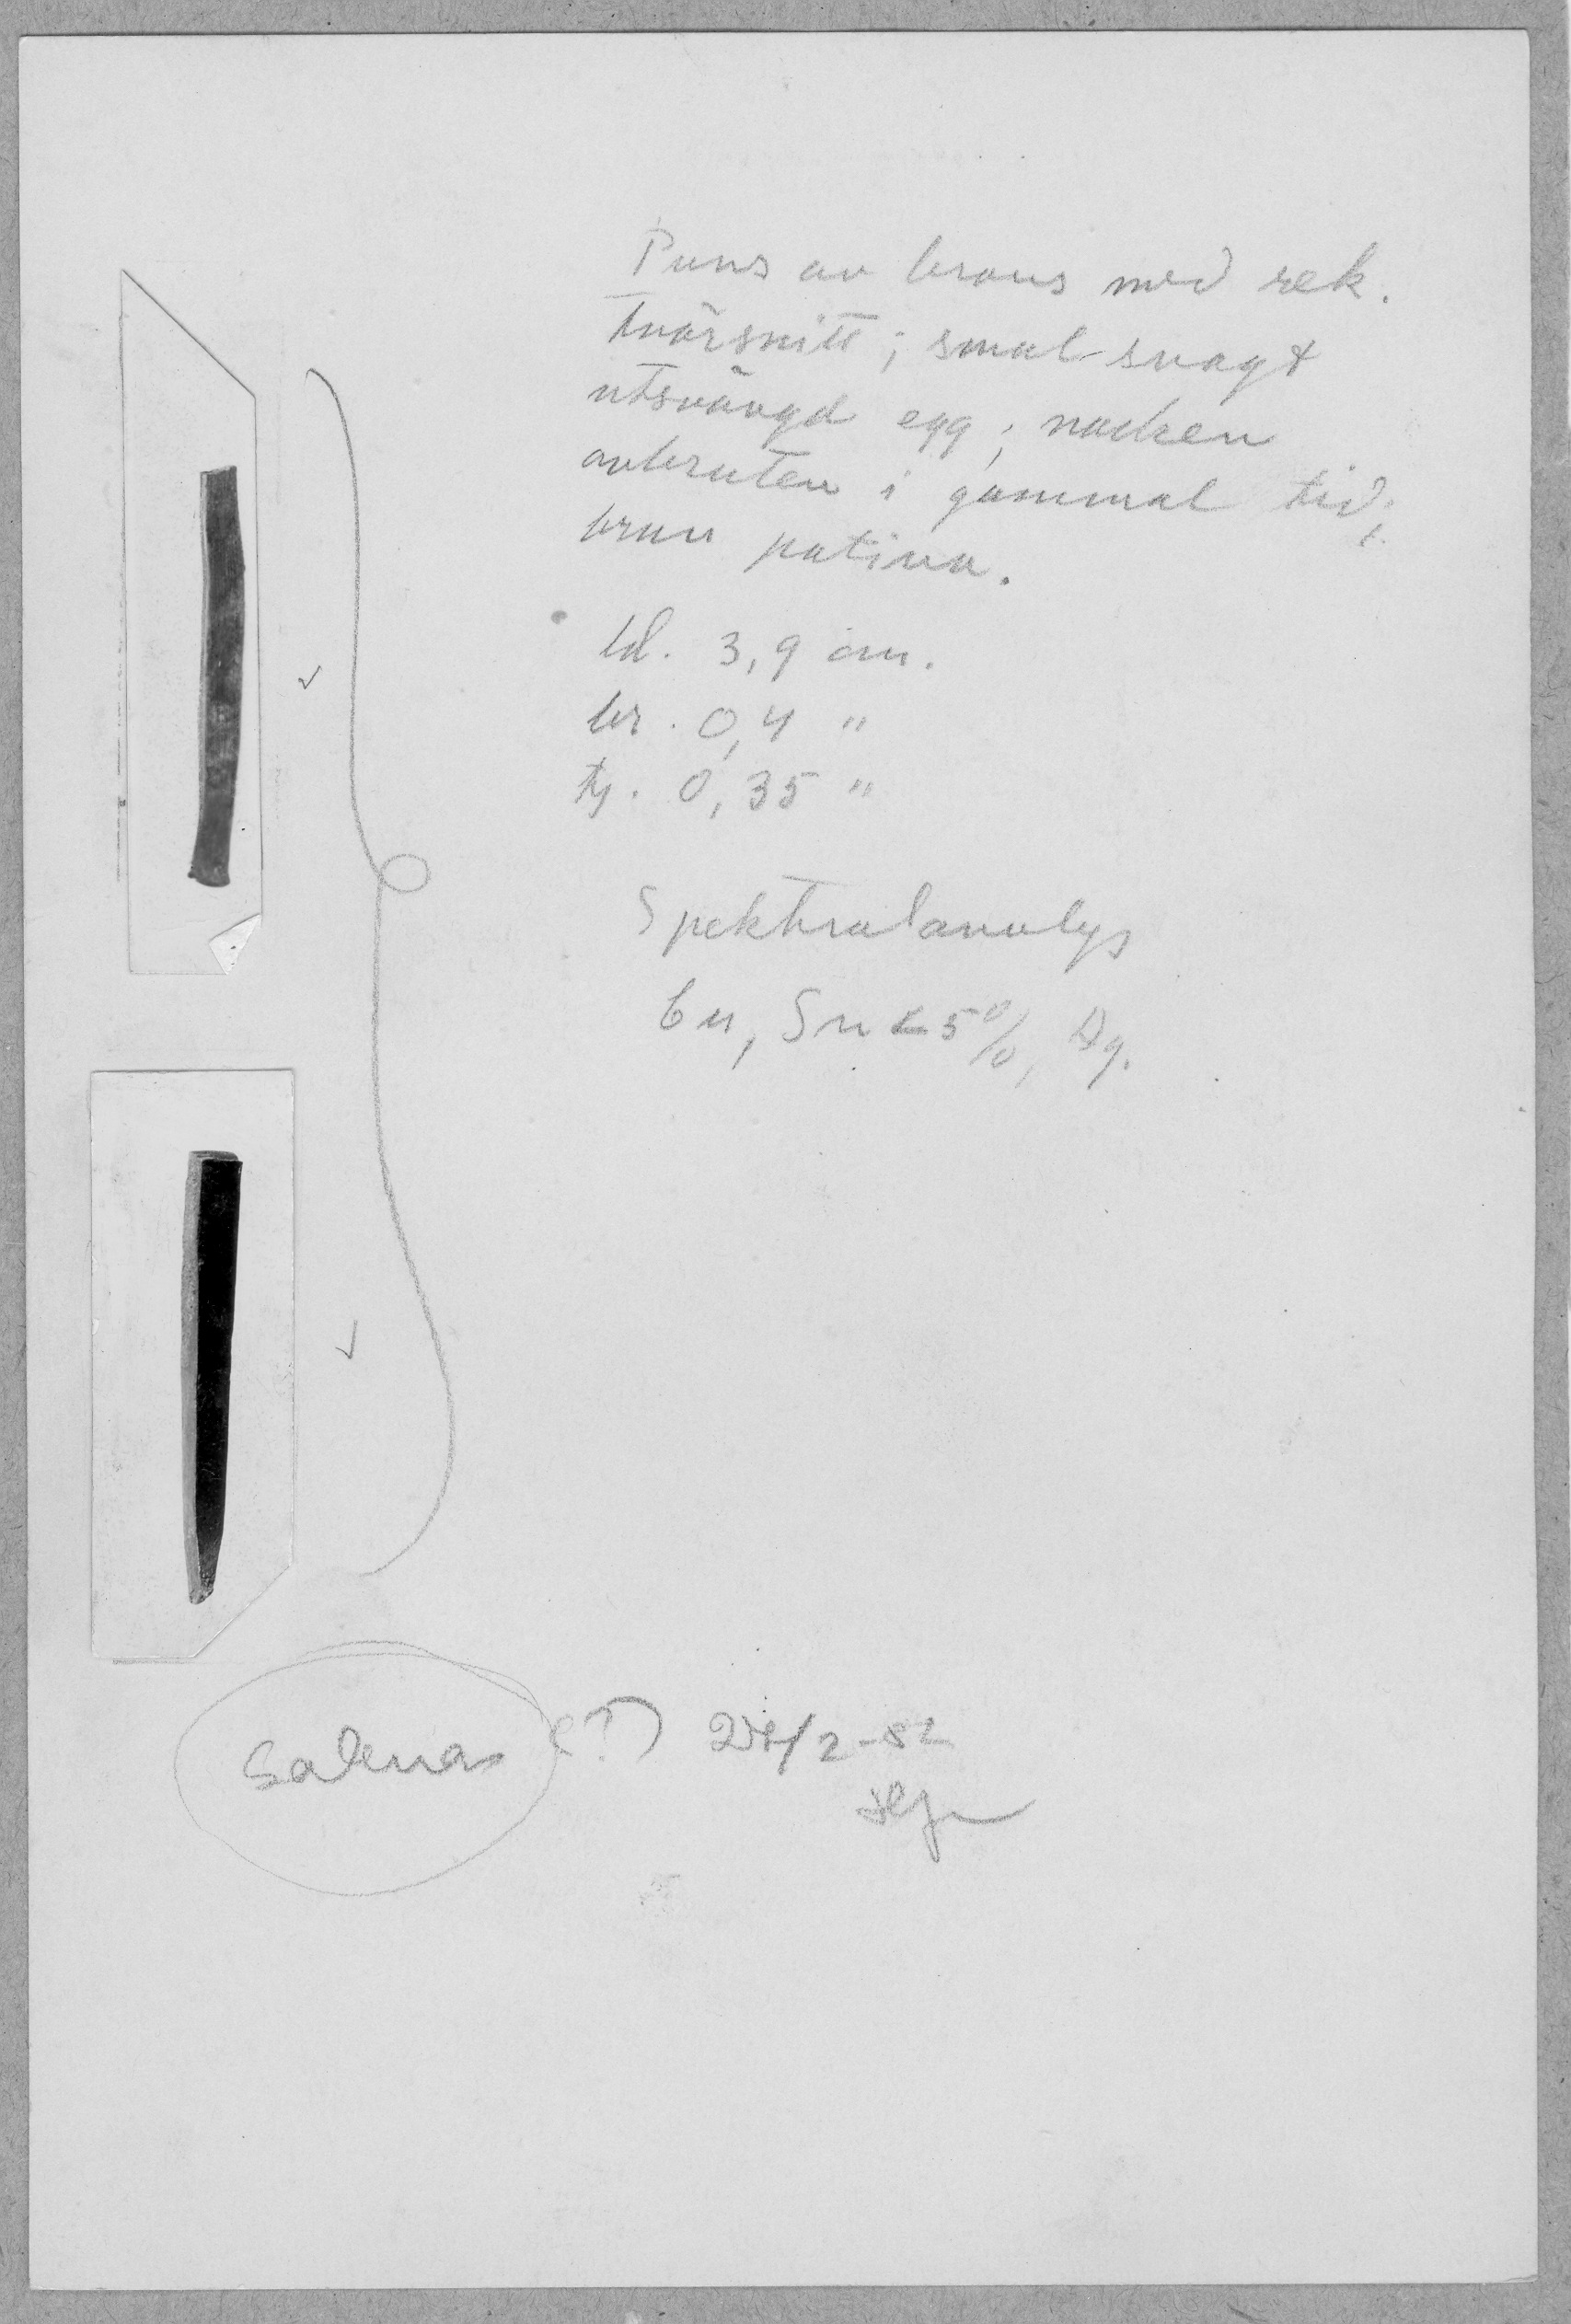 Puns av brons med rek.
tvärsnitt; smal svagt
utsvängd egg; nacken
avbruten i gammal tid;
brun patina.
ld. 3,9 cm.
br. 0,4 "
tj. 0,35 "
Spektralanalys
Cu, Sn < 5%, Ag.
Saknas (?) 24/2-82